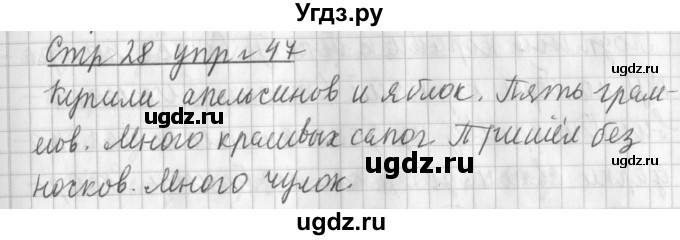 Угдз.ру
Стр 28 упр 47
ugdz.ru
Купили апельсинов и яблок. Пять грам-
ugdz.ru
мов. Много красивых сапог. Пришёл без
ugdz.ru
носков. Много чулок.
ugdz.ru
ugdz.ru
ugdz.ru